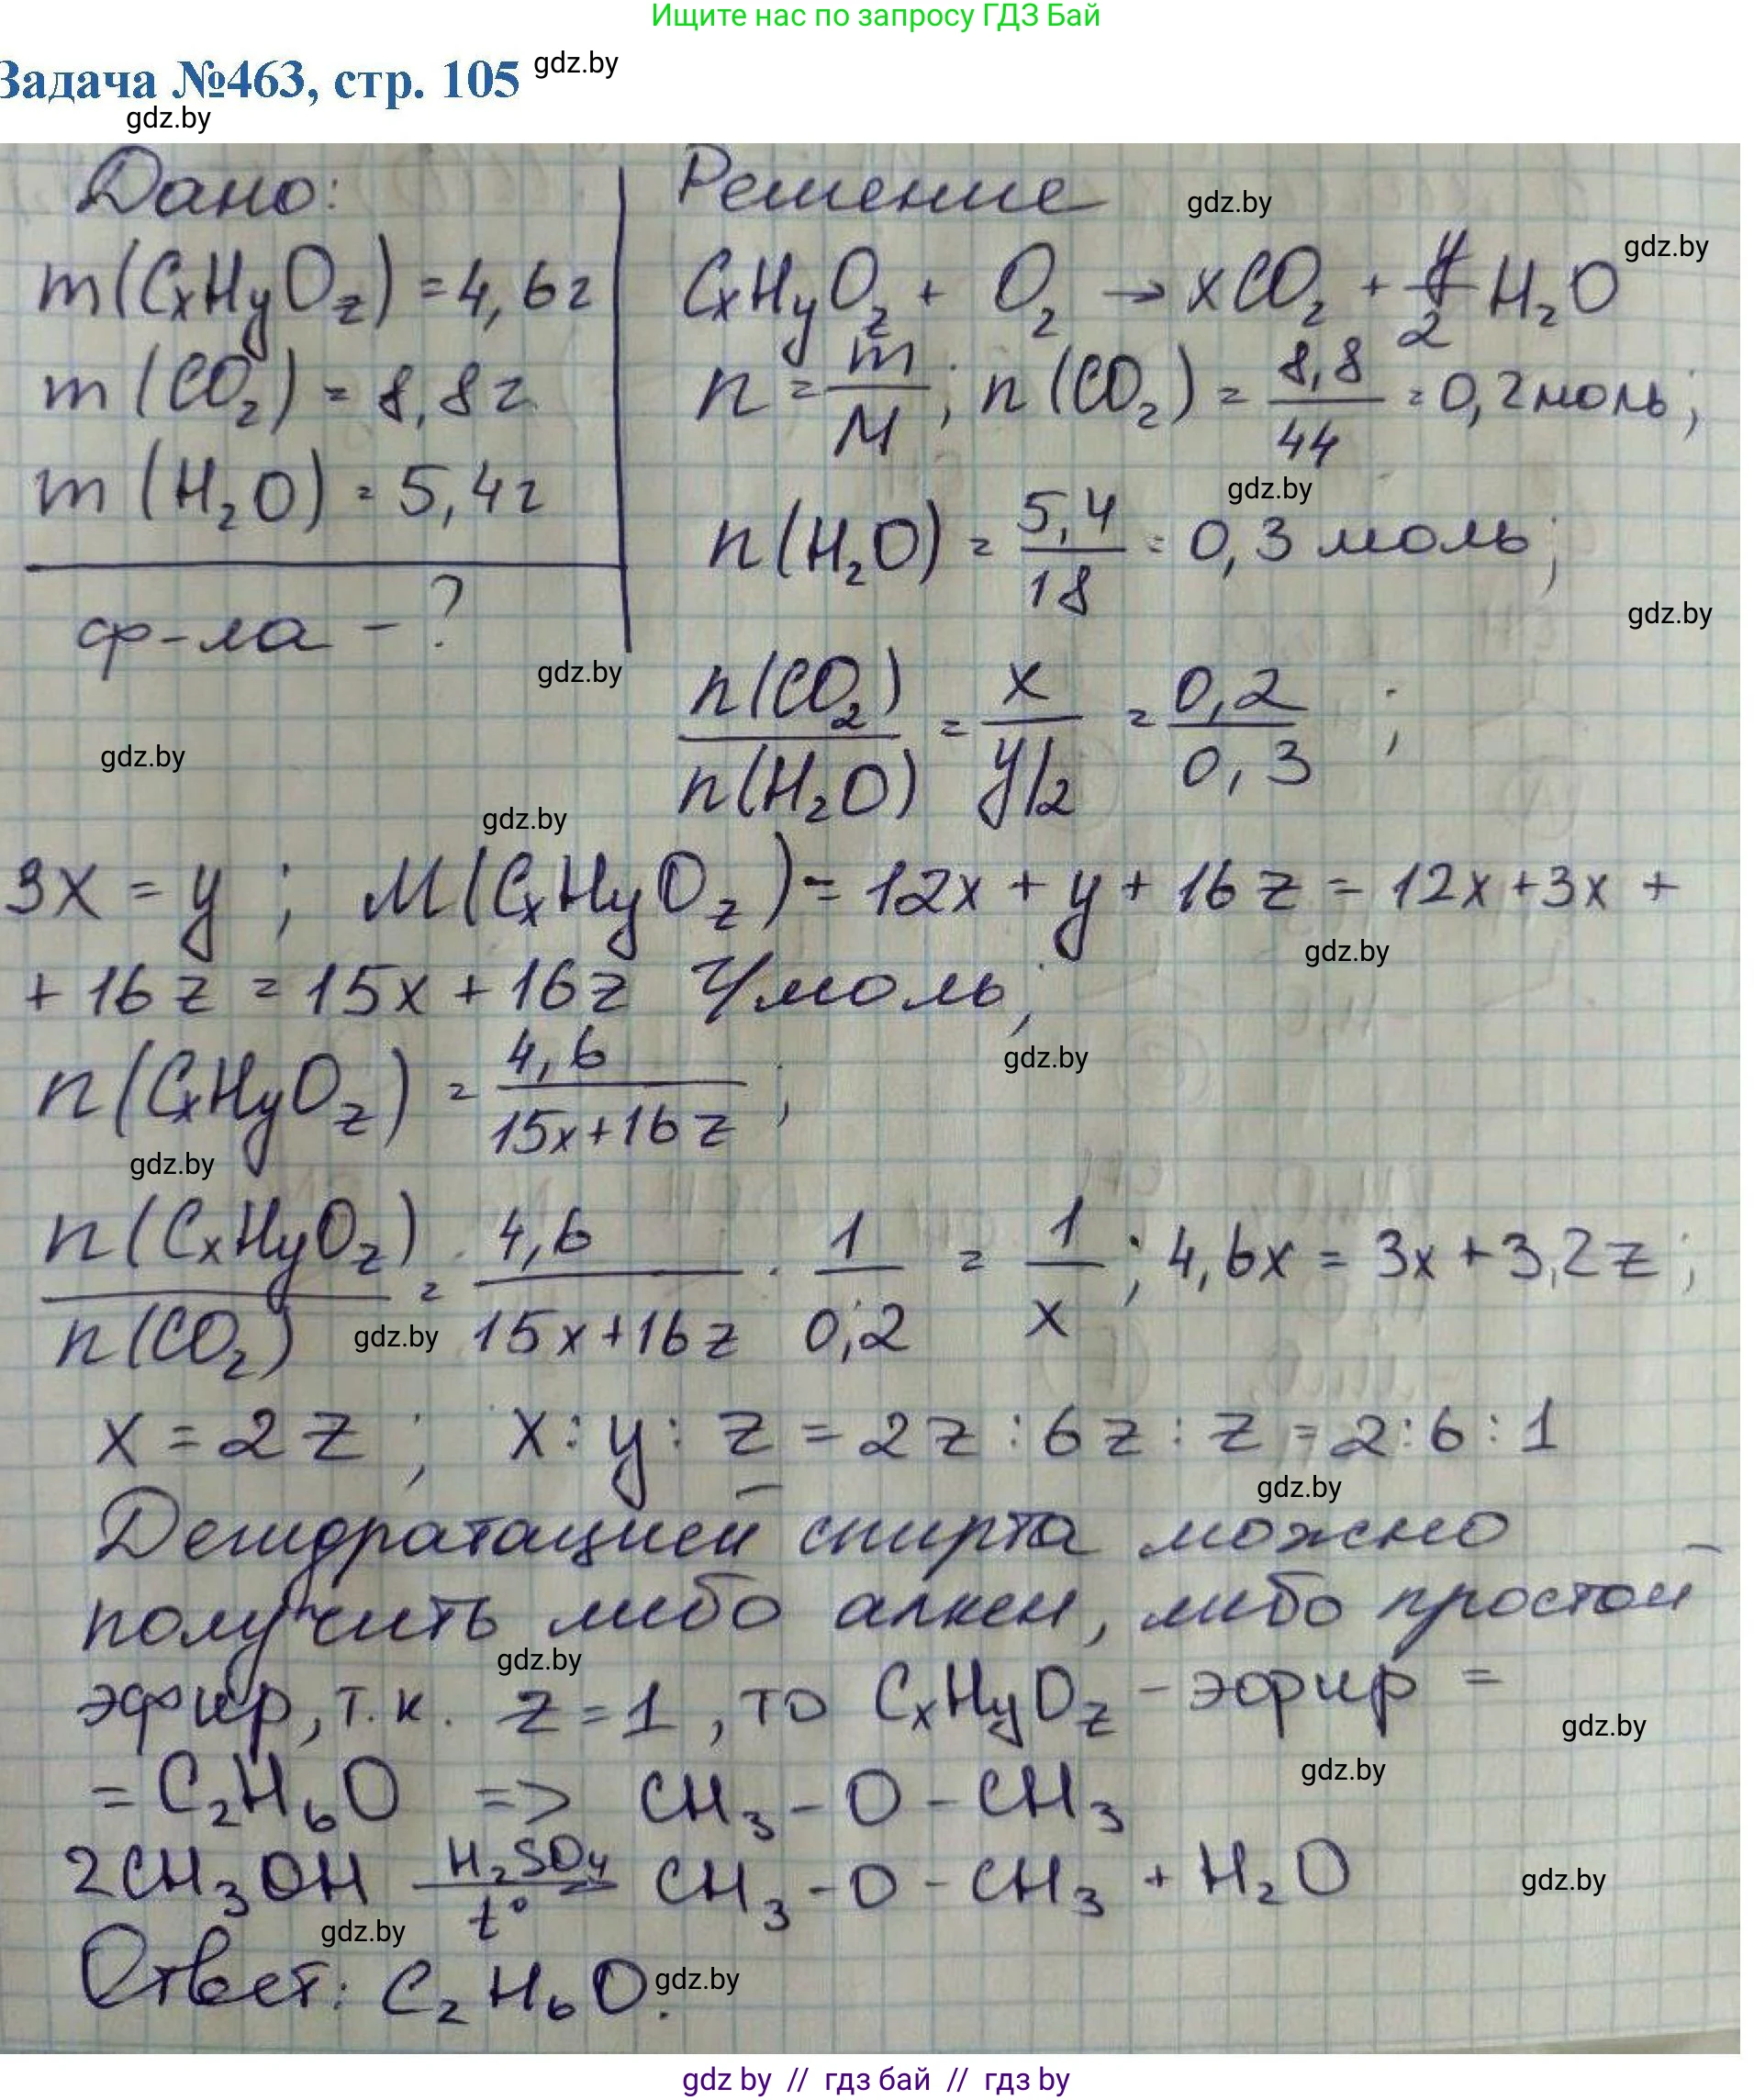 Ищите нас по запросу ГДЗ Бай
Задача №463, стр. 105 gdz.by
gdz.by
Дано:
m(CxHyOz) = 4,6г
m(CO₂) = 8,8г
m(H₂O) = 5,4г
ф-ла - ?
gdz.by
gdz.by
Решение gdz.by
gdz.by
CxHyOz + O₂ → xCO₂ + y/2 H₂O
n = m/M; n(CO₂) = 8,8/44 = 0,2моль;
gdz.by
n(H₂O) = 5,4/18 = 0,3 моль;
gdz.by
n(CO₂)/n(H₂O) = x/y/2 = 0,2/0,3;
gdz.by
3x = y; M(CxHyOz) = 12x + y + 16z = 12x + 3x +
gdz.by
+ 16z = 15x + 16z г/моль;
gdz.by
n(CxHyOz) = 4,6/15x+16z;
gdz.by
n(CxHyOz)/n(CO₂) = 4,6/15x+16z · 1/0,2 = 1/x; 4,6x = 3x + 3,2z;
gdz.by
x = 2z; x : y : z = 2z : 6z : z = 2 : 6 : 1
gdz.by
Дегидратацией спирта можно
получить либо алкен, либо простой
gdz.by
эфир, т.к. z = 1, то CxHyOz - эфир =
gdz.by
gdz.by
= C₂H₆O => CH₃ - O - CH₃
2CH₃OH H₂SO₄ t° CH₃ - O - CH₃ + H₂O
gdz.by
gdz.by
Ответ: C₂H₆O. gdz.by
gdz by // гдз бай // гдз by